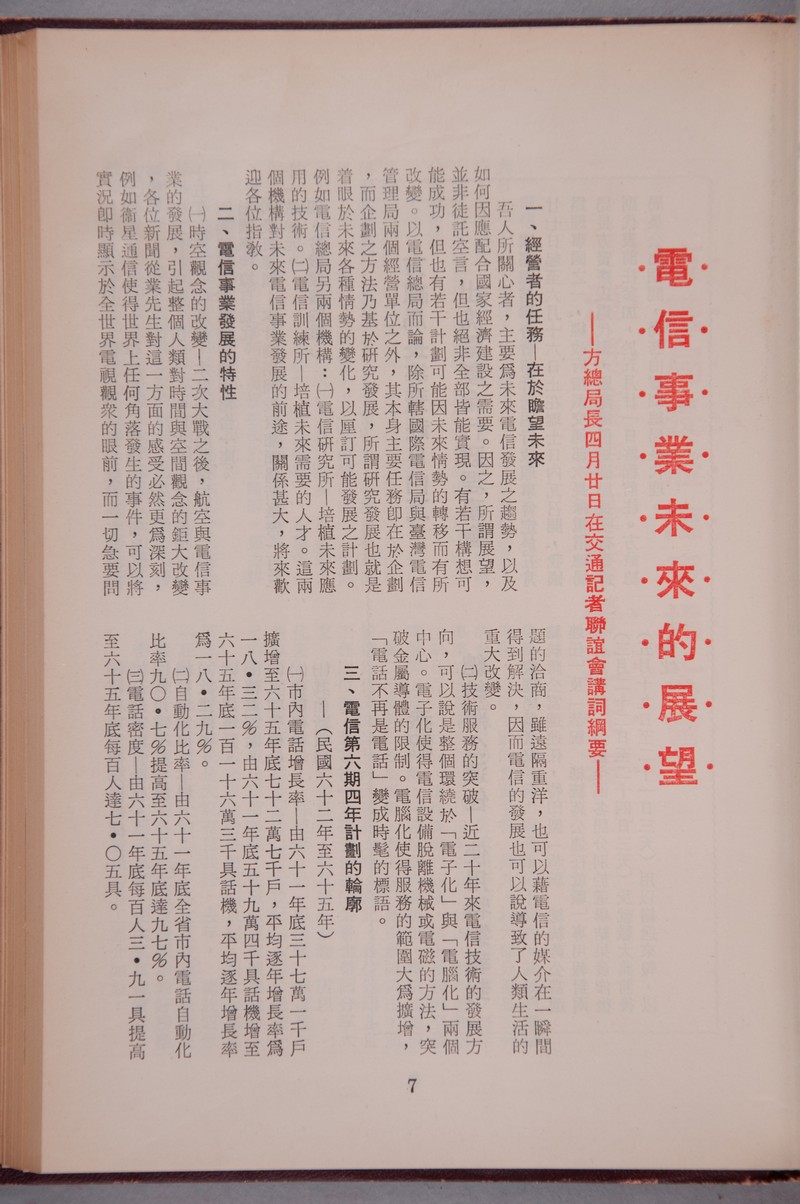 電信事業未來的展望
——方總局長四月廿日在交通記者聯誼會講詞綱要——
一、經營者的任務—在於瞻望未來
吾人所關心者，主要爲未來電信發展之趨勢，以及
如何因應配合國家經濟建設之需要。因之，所謂展望，
並非徒託空言，但也絕非全部皆能實現。有若干構想可
能成功，但也有若干計劃可能因未來情勢的轉移而有所
改變。以電信總局而論，除所轄國際電信局與臺灣電信
管理局兩個經營單位之外，其本身主要任務卽在於企劃
，而企劃之方法乃基於研究發展，所謂研究發展也就是
着眼於未來各種情勢的變化，以厘訂可能發展之計劃。
例如電信總局另兩個機構：㈠電信研究所—培植未來應
用的技術。㈡電信訓練所—培植未來需要的人才。這兩
個機構對未來電信事業發展的前途，關係甚大，將來歡
迎各位指敎。
二、電信事業發展的特性
㈠時空觀念的改變—二次大戰之後，航空與電信事
業的發展，引起整個人類對時間與空間觀念的鉅大改變
，各位新聞從業先生對這一方面的感受必然更爲深刻，
例如衞星通信使得世界上任何角落發生的事件，可以將
實況卽時顯示於全世界電視觀衆的眼前，而一切急要問
題的洽商，雖遠隔重洋，也可以藉電信的媒介在一瞬間
得到解決，因而電信的發展也可以說導致了人類生活的
重大改變。
㈡技術服務的突破—近二十年來電信技術的發展方
向，可以說是整個環繞於「電子化」與「電腦化」兩個
中心。電子化使得電信設備脫離機械或電磁的方法，突
破金屬導體的限制。電腦化使得服務的範圍大爲擴增，
「電話不再是電話」變成時髦的標語。
三、電信第六期四年計劃的輪廓
—（民國六十二年至六十五年）
㈠市內電話增長率——由六十一年底三十七萬一千戶
擴增至六十五年底七十二萬七千戶，平均逐年增長率爲
一八•三二%，由六十一年底五十九萬四千具話機增至
六十五年底一百一十六萬三千具話機，平均逐年增長率
爲一八•二九%。
㈡自動化比率——由六十一年底全省市內電話自動化
比率九〇•七%提高至六十五年底達九七%。
㈢電話密度——由六十一年底每百人三•九一具提高
至六十五年底每百人達七•〇五具。
7